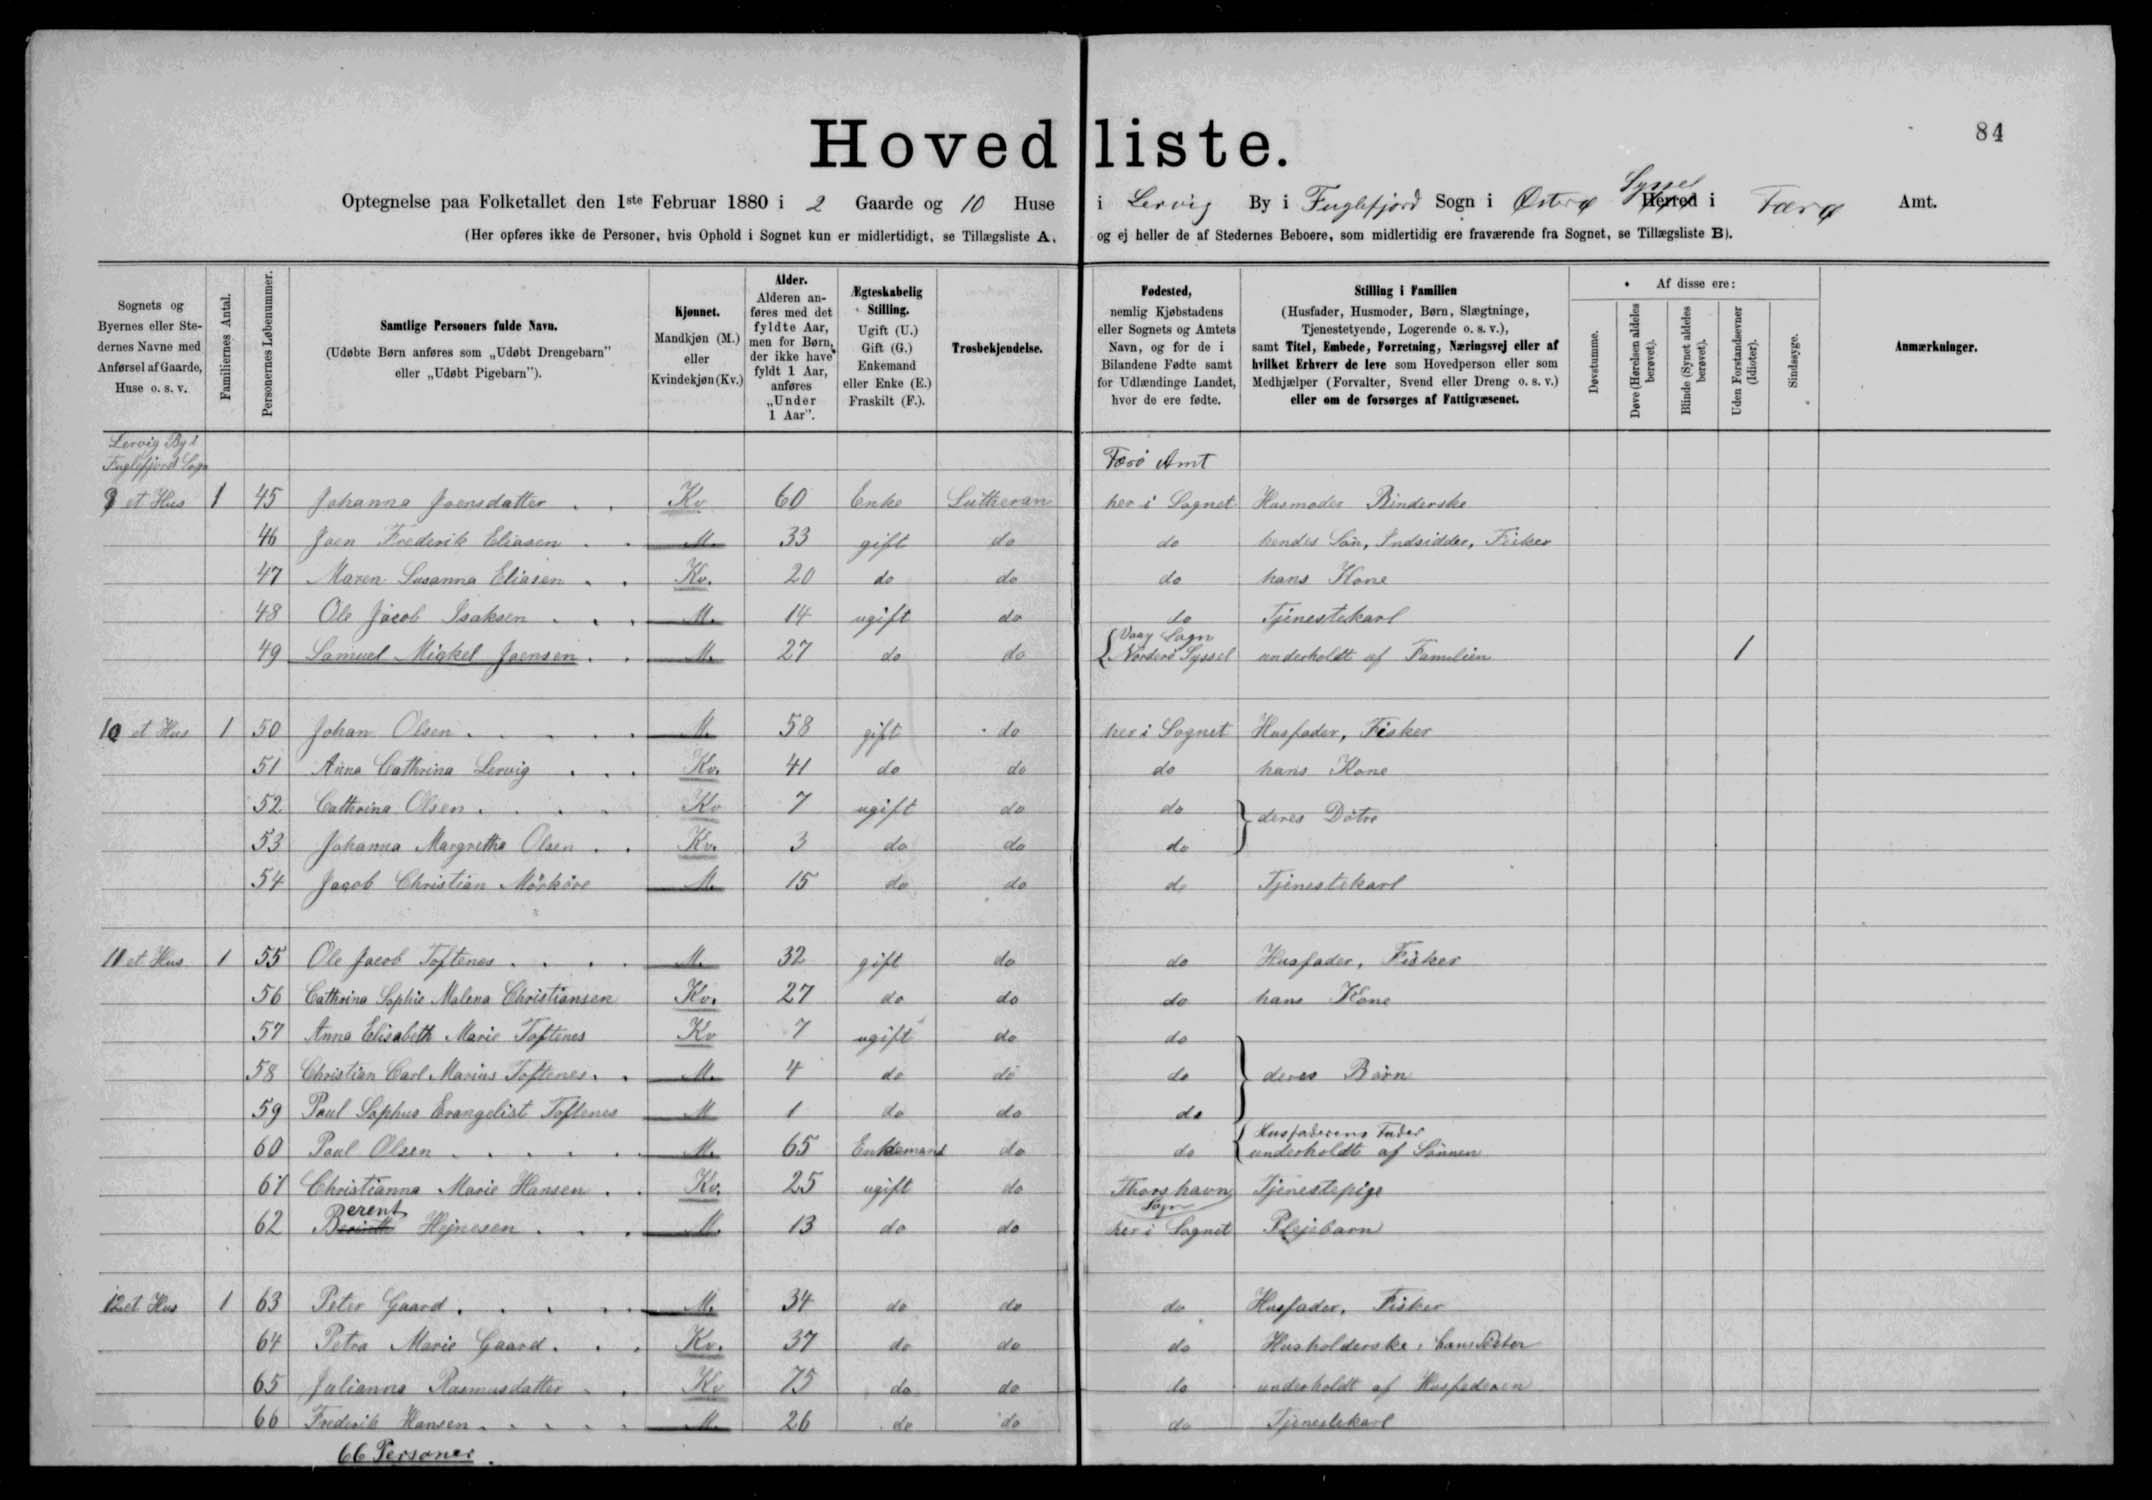 Hovedliste.
84
Optegnelse paa Folketallet den 1ste Februar 1880 i 2 Gaarde og 10 Huse i Lervig By i Fuglefjord Sogn i Østerø Syssel Herred i Færø Amt.
(Her opføres ikke de Personer, hvis Ophold i Sognet kun er midlertidigt, se Tillægsliste A, og ej heller de af Stedernes Beboere, som midlertidig ere fraværende fra Sognet, se Tillægsliste B).
Sognets og
Byernes eller Ste-
dernes Navne med
Anførsel af Gaarde,
Huse o. s. v.
Familiernes Antal.
Personernes Løbenummer.
Samtlige Personers fulde Navn.
(Udøbte Børn anføres som „Udøbt Drengebarn”
eller „Udøbt Pigebarn”).
Kjønnet.
Mandkjøn (M.)
eller
Kvindekjøn (Kv.)
Alder.
Alderen an-
føres med det
fyldte Aar,
men for Børn,
der ikke have
fyldt 1 Aar,
anføres
„Under
1 Aar”.
Ægteskabelig
Stilling.
Ugift (U.)
Gift (G.)
Enkemand
eller Enke (E.)
Fraskilt (F.).
Trosbekjendelse.
Fødested,
nemlig Kjøbstadens
eller Sognets og Amtets
Navn, og for de i
Bilandene Fødte samt
for Udlændinge Landet,
hvor de ere fødte.
Stilling i Familien
(Husfader, Husmoder, Børn, Slægtninge,
Tjenestetyende, Logerende o. s. v.),
samt Titel, Embede, Forretning, Næringsvej eller af
hvilket Erhverv de leve som Hovedperson eller som
Medhjælper (Forvalter, Svend eller Dreng o. s. v.)
eller om de forsørges af Fattigvæsenet.
Af disse ere:
Døvstumme.
Døve (Hørelsen aldeles
berøvet).
Blinde (Synet aldeles
berøvet).
Uden Forstandsevner
(Idioter).
Sindssyge.
Anmærkninger.
Lervig By i
Fuglefjord Sogn
Færö Amt
9 et Hus 1 45 Johanna Joensdatter . . Kv 60 Enke Lutheran her i Sognet Husmoder Binderske
46 Joen Frederik Eliasen . . M. 33 gift do do hendes Sön, Indsidder, Fisker
47 Maren Susanna Eliasen . . Kv. 20 do do do hans Kone
48 Ole Jacob Isaksen . . . M. 14 ugift do do Tjenestekarl
49 Samuel Mickel Joensen . . M. 27 do do Vaay Sogn
Norderö Syssel underholdt af Familien 1
10 et Hus 1 50 Johan Olsen . . . . . M. 58 gift do her i Sognet Husfader, Fisker
51 Anna Cathrina Lervig . . . Kv. 41 do do do hans Kone
52 Cathrina Olsen . . . . Kv 7 ugift do do deres Dötre
53 Johanna Margretha Olsen . . Kv. 3 do do do
54 Jacob Christian Mörköre M. 15 do do do Tjenestekarl
11 et Hus 1 55 Ole Jacob Toftenes . . . . M. 32 gift do do Husfader, Fisker
56 Cathrina Sophie Malena Christiansen Kv. 27 do do do hans Kone
57 Anna Elisabeth Marie Toftenes Kv 7 ugift do do
58 Christian Carl Marius Toftenes . . M. 4 do do do deres Börn
59 Poul Sophus Evangelist Toftenes M 1 do do do
60 Poul Olsen . . . . . . M. 65 Enkemand do do Husfaderens Fader
underholdt af Sönnen
61 Christianna Marie Hansen . . Kv. 25 ugift do Thorshavn
Sogn Tjenestepige
62 Berent Hejnesen . . . M. 13 do do her i Sognet Plejebarn
12 et Hus 1 63 Peter Gaard . . . . . M. 34 do do do Husfader, Fisker
64 Petra Marie Gaard . . . Kv. 37 do do do Husholderske, hans Söster
65 Julianna Rasmusdatter . . Kv 75 do do do underholdt af Husfaderen
66 Frederik Hansen . . . . . M. 26 do do do Tjenestekarl
66 Personer.